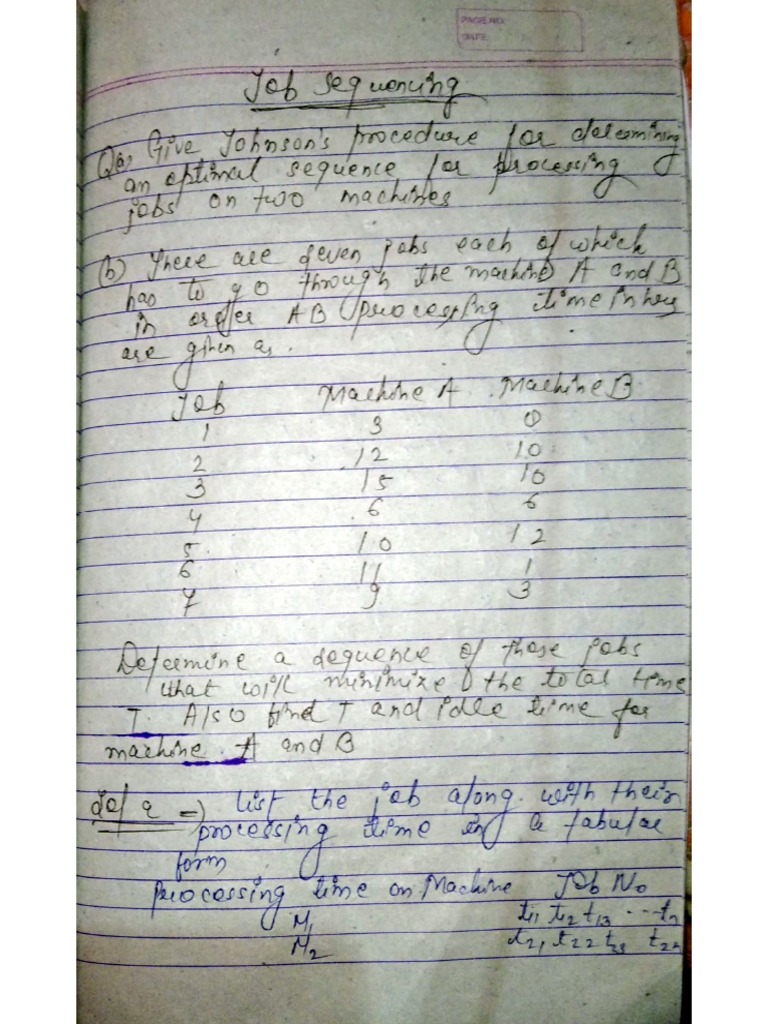 PAGE NO.
DATE
Job Sequencing
Q(a) Give Johnson's procedure for determining
an optimal sequence for processing
jobs on two machines
(b) There are seven jobs each of which
has to go through the machine A and B
in order AB processing time in hours
are given as.
Job Machine A Machine B
1 3
2 12 10
3 15 10
4 6 6
5 10 12
6 11 1
7 9 3
Determine a sequence of these jobs
that will minimize the total time
T. Also find T and idle time for
machine A and B
Sol a => List the job along with their
processing time in a tabular
form
processing time on Machine Job No
M1 t11 t12 t13 ...
M2 t21 t22 t23 t2n